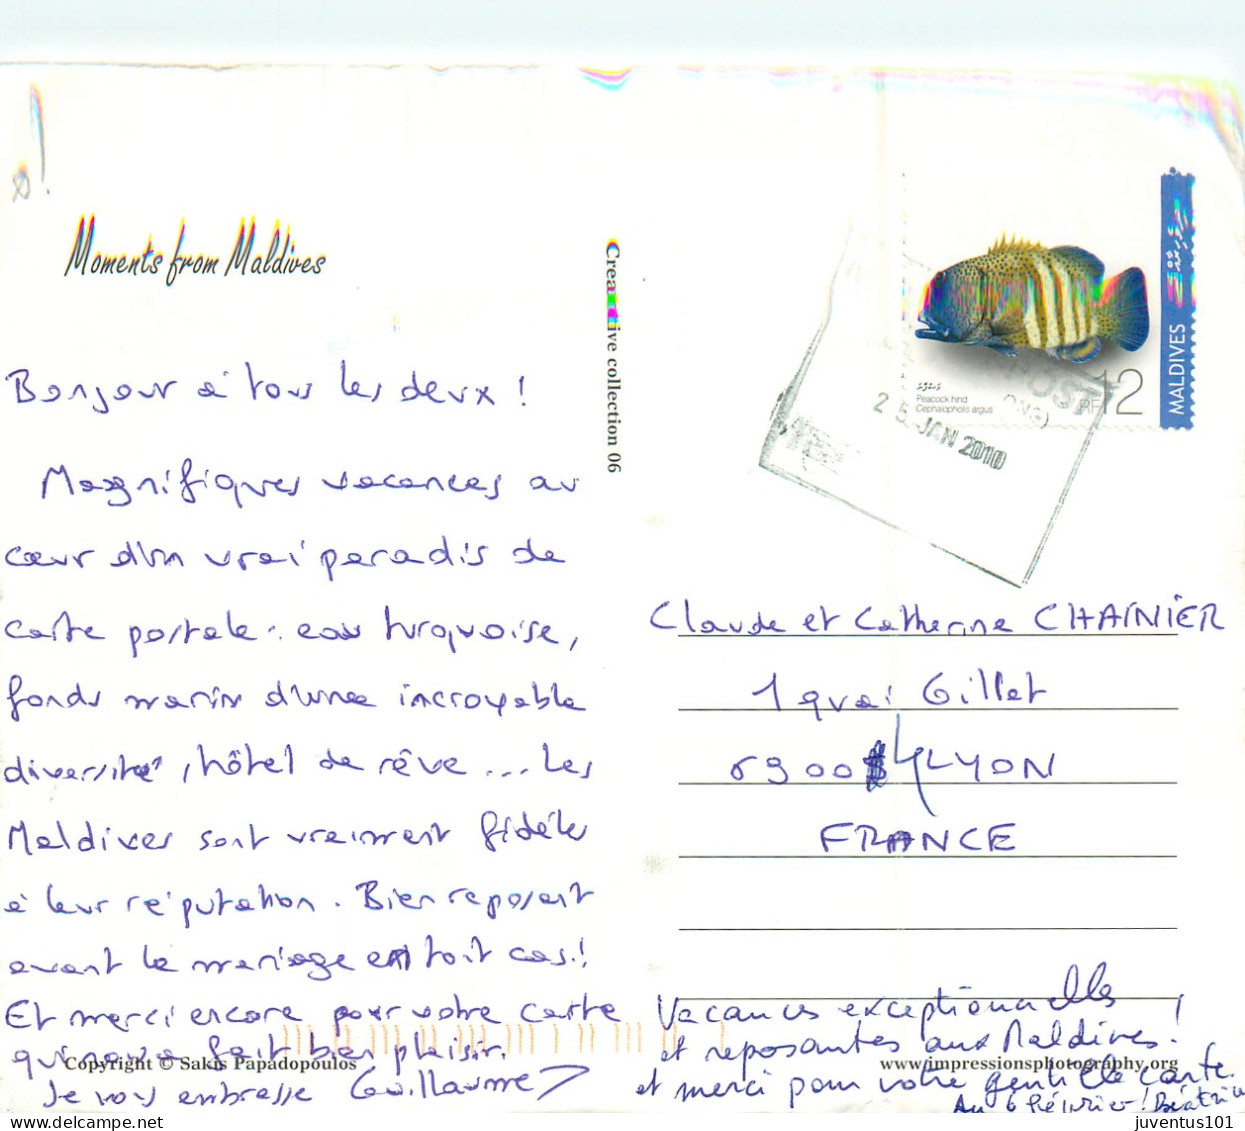 Moments from Maldives
Creative collection 06
Bonjour à tous les deux !
Magnifiques vacances au
cœur d'un vrai paradis de
carte postale : eau turquoise,
fonds marin d'une incroyable
diversité, hôtel de rêve ... Les
Maldives sont vraiment fidèles
à leur réputation. Bien reposant
avant le mariage en tout cas !
Et merci encore pour votre carte
qui nous a fait bien plaisir.
Je vous embrasse Guillaume
Copyright © Sakis Papadopoulos
MALDIVES
Peacock hind
Cephalopholis argus
RF 12
POST
25 JAN 2010
Claude et Catherine CHAINIER
1 quai Gillet
69004 LYON
FRANCE
Vacances exceptionnelles
et reposantes aux Maldives !
et merci pour votre gentille carte.
Au 6 Février ! Béatrice
www.impressionsphotography.org
juventus101